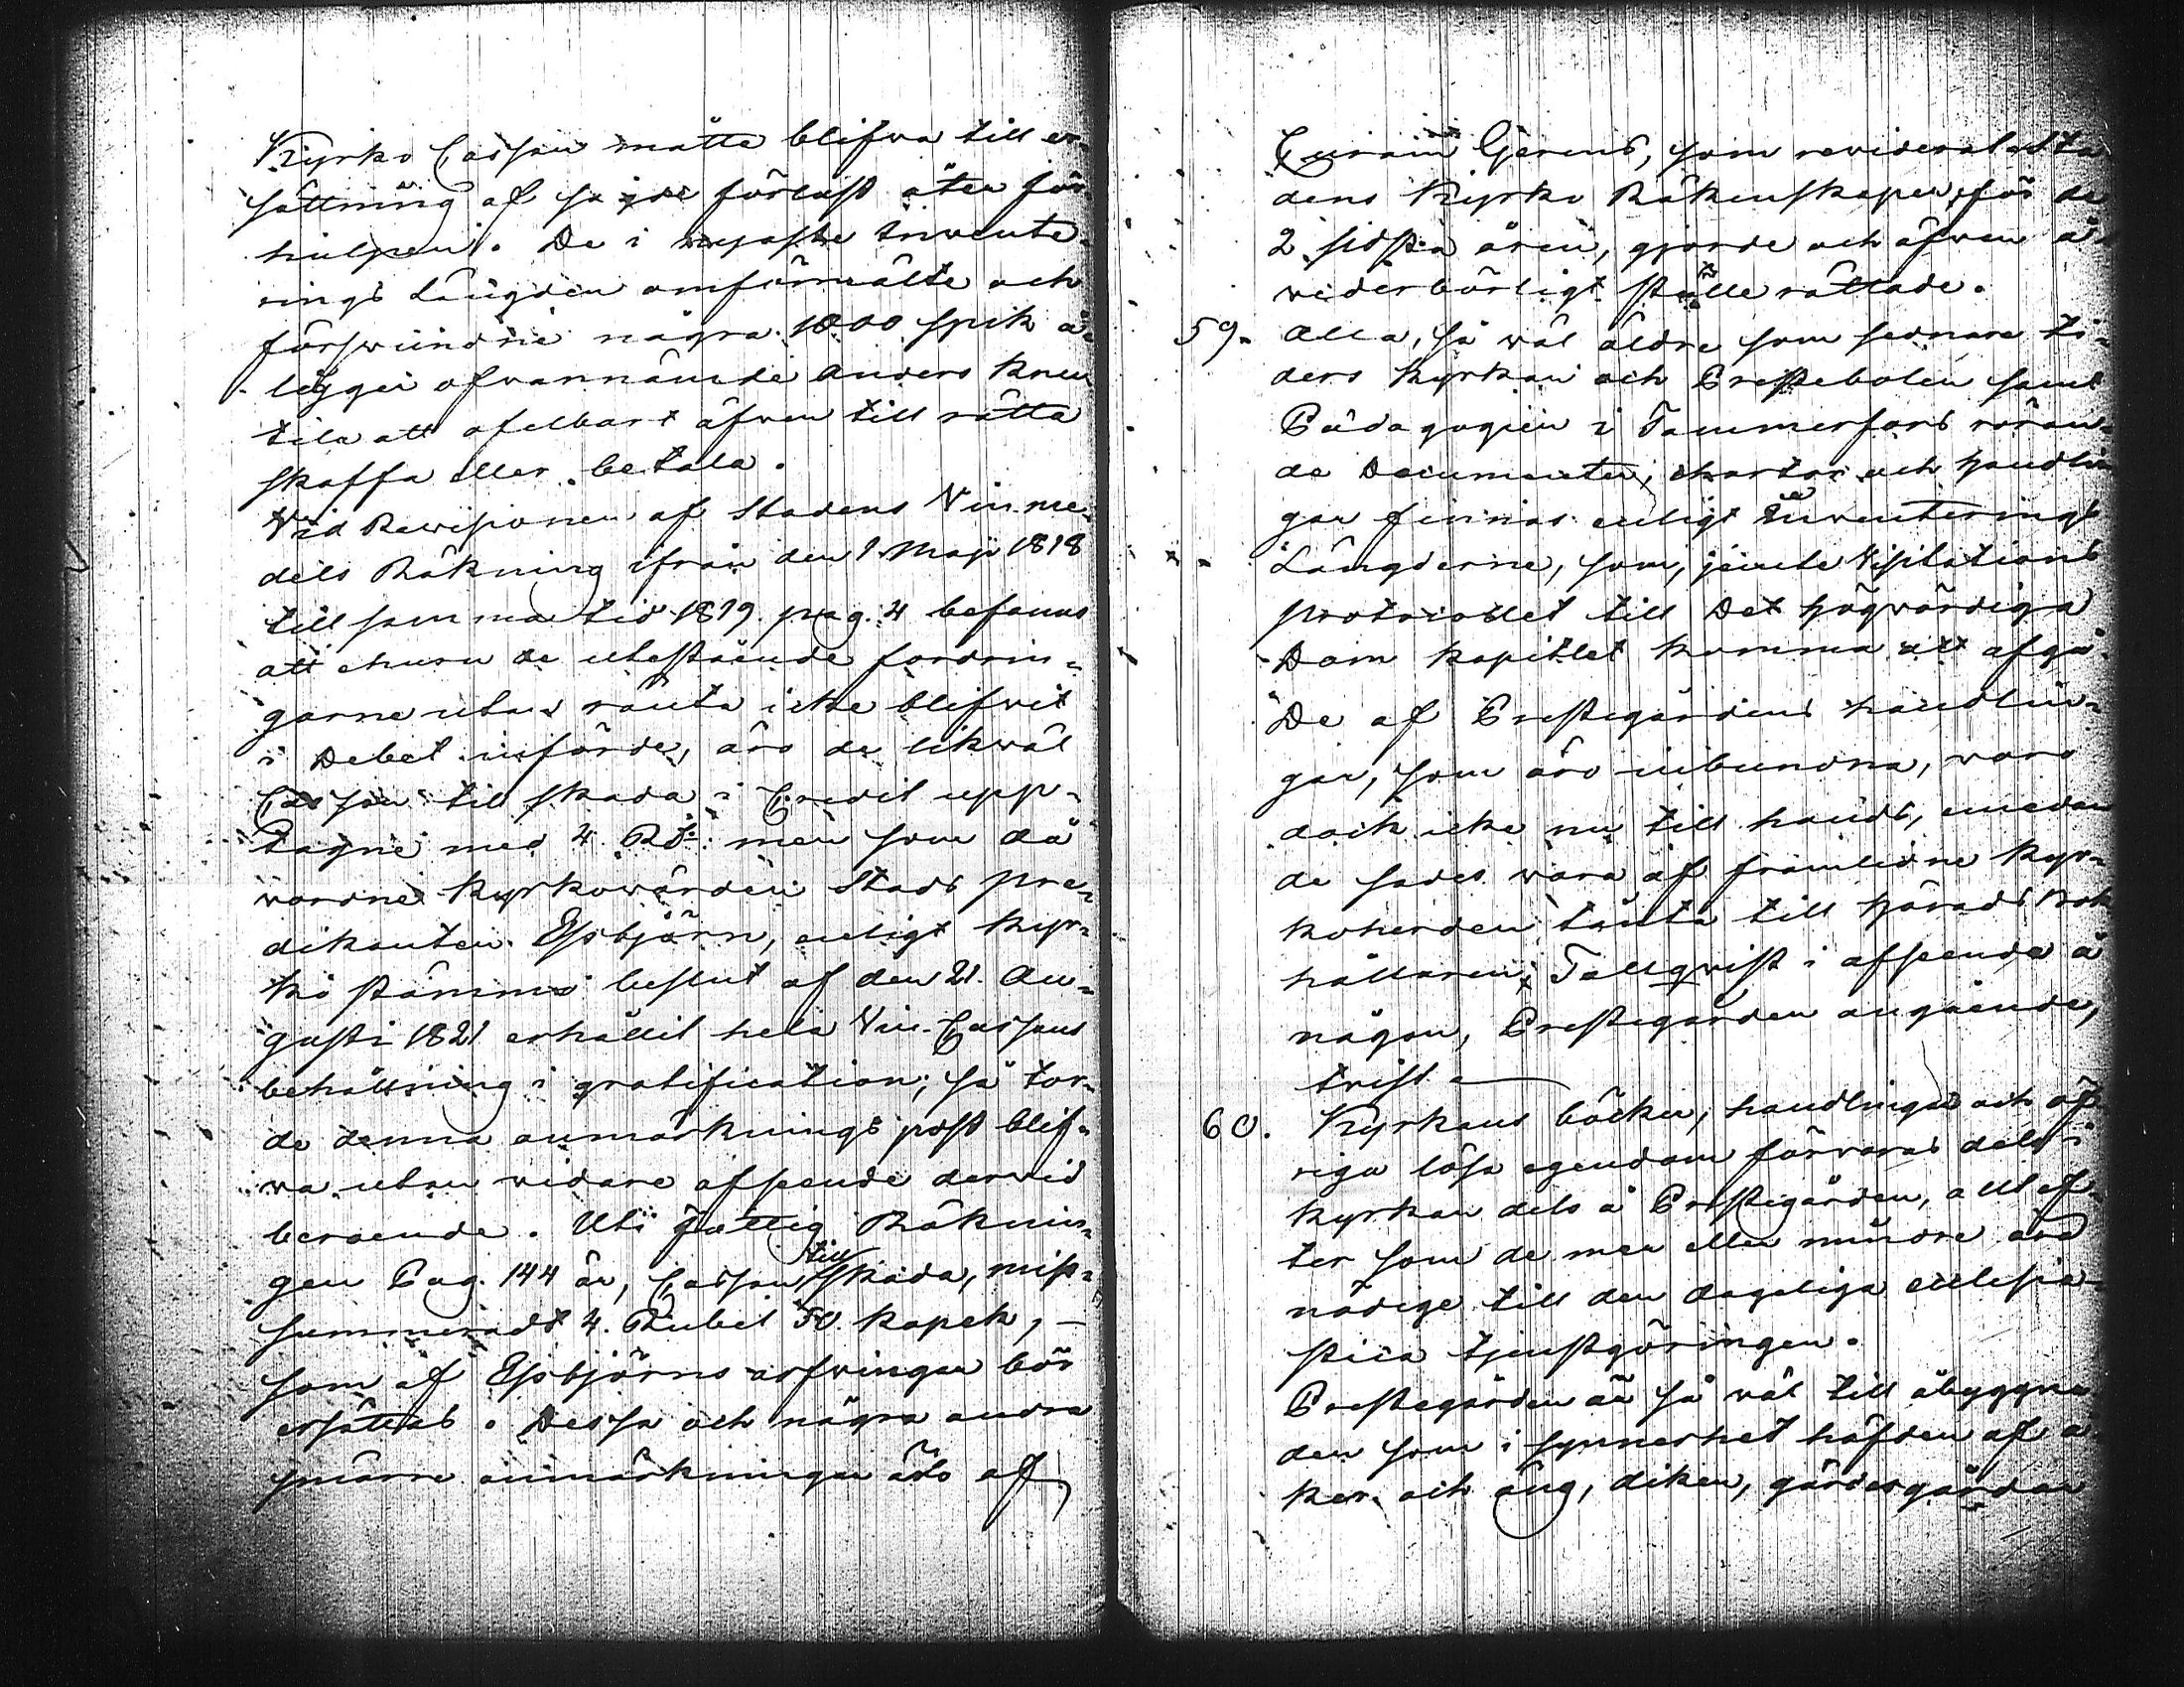 Kyrko Cassan måtte blifwa till er-
sättning af förlust åter för
hulpen. De i nyaste Invente-
rings Längden omförmälte och
förswundne några 1000 spik å-
ligger ofvannämnde Anders Knu
tila att ofelbart äfven till rätta
skaffa eller betala.
Vid Revisionen af Stadens Vin me-
dels Räkning ifrån den 1 Maji 1818
till samma tid 1819. pag. 4 befanns
att churu de utestående fordrin-
garne utan ränta icke blifvit
i Debet införde, äro de likwäl
Cassan till skada i Credit upp-
tagne med 4 Rd. men som då
vordne Kyrkowärden Stads pre-
dikanten Esbjörn, enligt Kyr-
ko stämmo beslut af den 21. Au-
gusti 1821 erhållit hela Vin Cassans
behållning i gratification; så tor-
de denna anmärknings post blif-
va utan vidare afseende dervid
beroende. Uti fattig Räknin-
gen Pag. 144 är, Cassan till skada, miss-
summeradt 4. Rubel 50. Kopek, -
som af Esbjörns arfvingar bör
ersättas. Dessa och några andra
smärre anmärkningar äro af
Curam Gerens, som reviderat sta
dens Kyrko Räkenskaper för de
2 sidsta åren, gjorde och äfven å
vederbörligt ställe rättade.
59. Alla, så wäl äldre som sednare ti-
ders Kyrkan och Prestebolen samt
Pädagogien i Tammerfors röran-
de Documenter, chartor och handlin
gar finnas enligt Inventerings
Längderne, som, jemte Visitations
protocollet till Det högvördiga
Dom kapitlet komma att afgå.
De af Prestegårdens handlin-
gar, som äro inbundna, voro
dock icke nu till hands, emedan
de sades vara af framlidne Kyr-
koherden lånta till Härads
hållaren Tallqvist i afseende å
någon, Prestegården angående,
trist
60. Kyrkans böcker, handlingar och öf
riga lösa egendom förvaras dels i
kyrkan dels å Prestegården, allt ef-
ter som de mer eller mindre äro
nödige till den dageliga ecclesia-
stica tjenstgöringen.
Prestegården är så väl till åbyggna
den som i synnerhet häfden af å
ker och äng, diken, gärdesgårdar